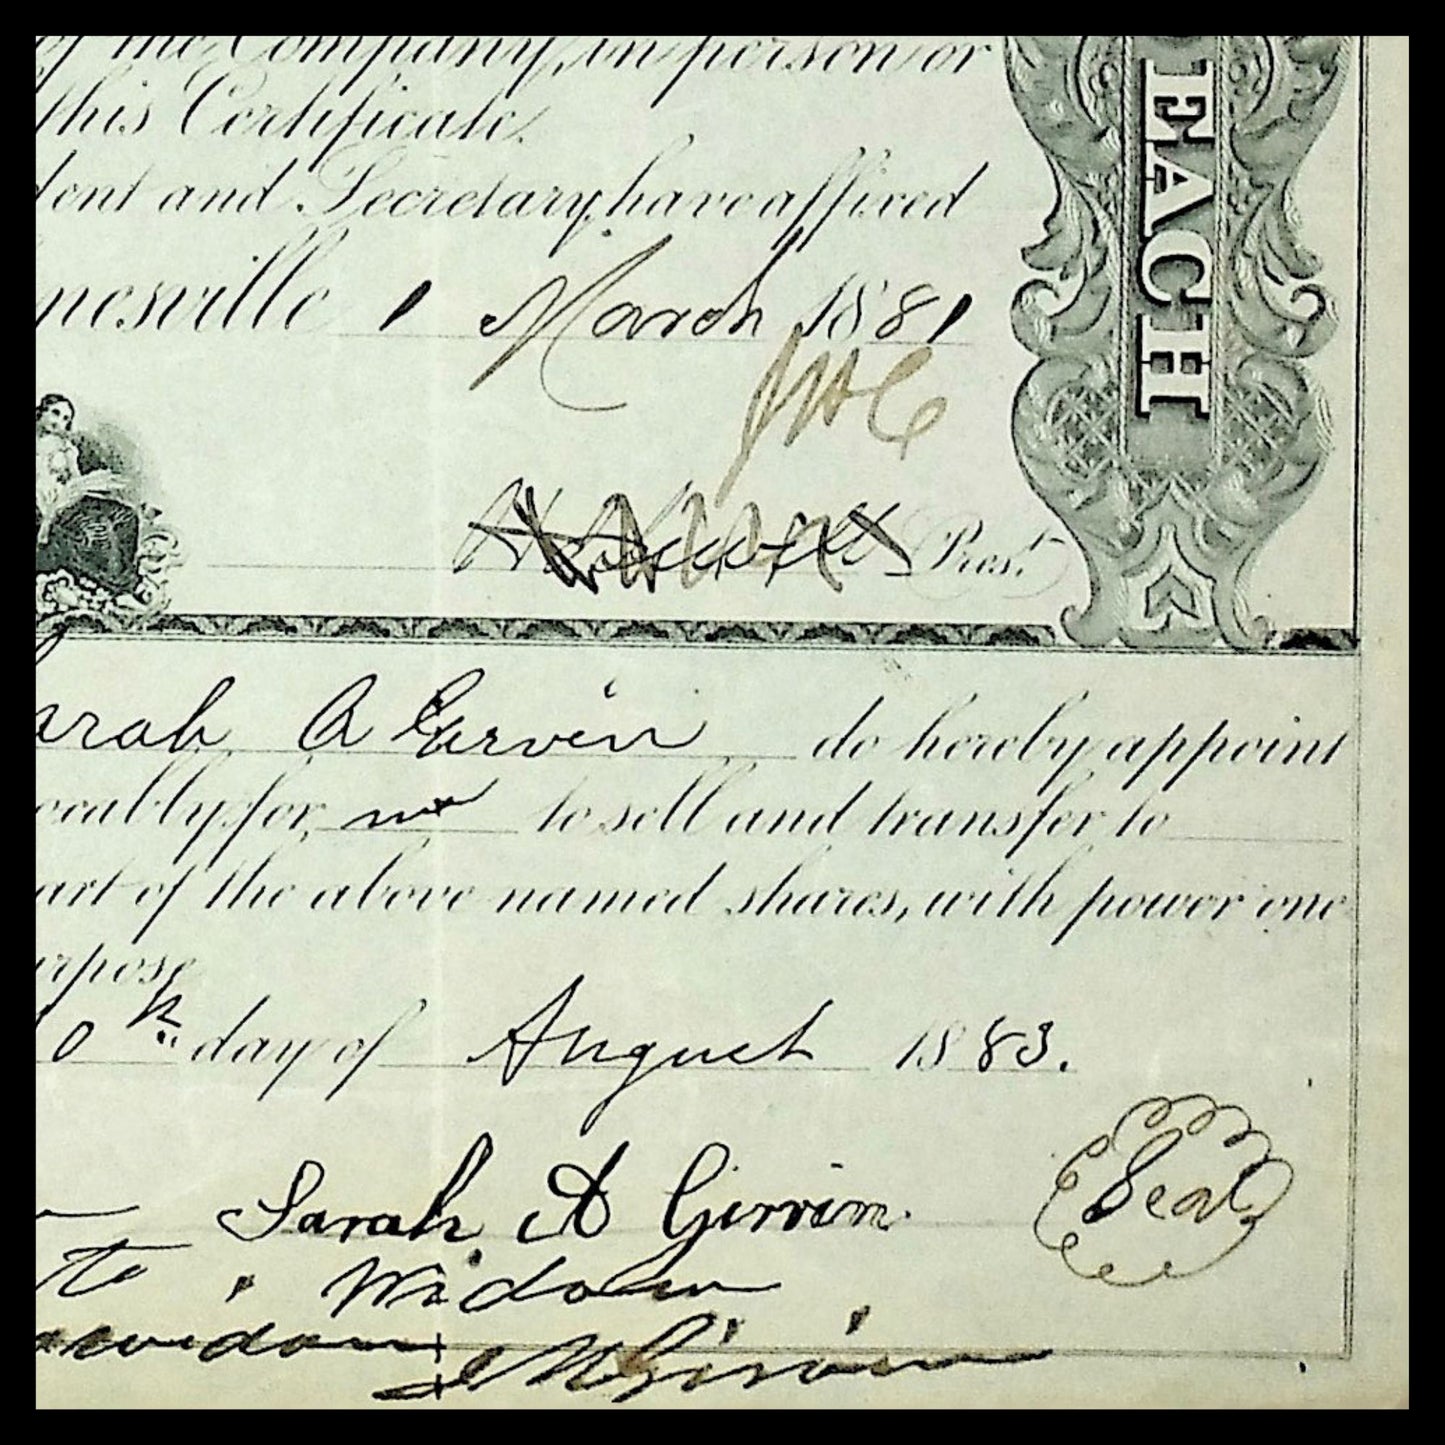 of the Company, in person or
this Certificate.
dent and Secretary, have affixed
nesville 1 March 1881
EACH
Prest.
arah A Girvin do hereby appoint
ocably for me to sell and transfer to
art of the above named shares, with power one
urpose
10th day of August 1883.
Sarah A Girvin
Seal
Widow
Girvin